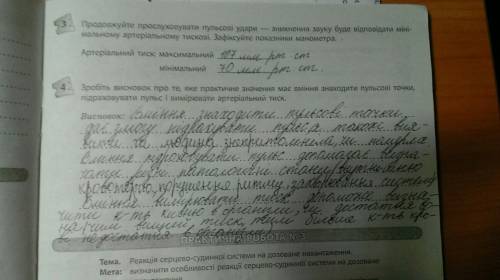 3 Продовжуйте прослуховувати пульсові удари — зникнення звуку буде відповідати міні-
мальному артеріальному тискові. Зафіксуйте показники манометра.
Артеріальний тиск: максимальний 117 мм рт ст
мінімальний 70 мм рт ст
4 Зробіть висновок про те, яке практичне значення має вміння знаходити пульсові точки,
підраховувати пульс і вимірювати артеріальний тиск.
Висновок: Вміння знаходити пульсові точки
дає змогу підрахувати пульс, а також вия-
вити чи людина знепритомніла чи померла
Вміння підраховувати пульс допомагає
різні патологічні стани
кровотечу, порушення ритму, захворювання
Вміння вимірювати тиск допоможе визна-
чити к-ть кисню в організмі, чи достатня во-
на, чим вищий тиск тим більша к-ть кро-
ві
ПРАКТИЧНА РОБОТА № 3
Тема. Реакція серцево-судинної системи на дозоване навантаження.
Мета: визначити особливості реакції серцево-судинної системи на дозоване